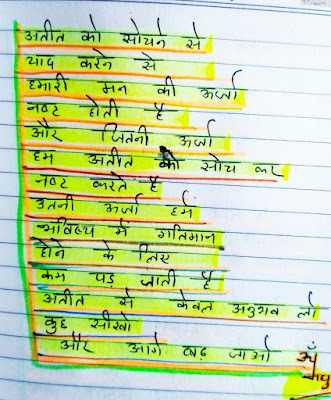 अतीत को सोचने से
याद करने से
हमारी मन की ऊर्जा
नष्ट होती है
और जितनी ऊर्जा
हम अतीत को सोच कर
नष्ट करते है
उतनी ऊर्जा हमें
भविष्य में गतिमान
होने के लिए
कम पड जाती है
अतीत से केवल अनुभव लो
कुछ सीखो
और आगे बढ़ जाओ